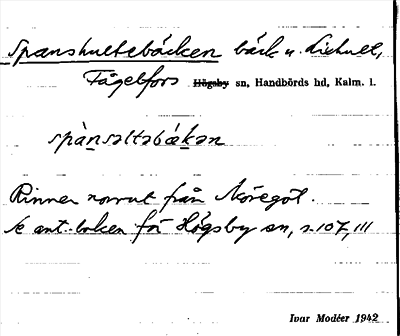 Spanshultebäcken bäck u. Liehult,
Fågelfors Högsby sn, Handbörds hd, Kalm. l.
spànsəltəbäkən
Rinner norrut från Noregöl.
Se ant.-boken för Högsby sn, s. 107, 111
Ivar Modéer 1942